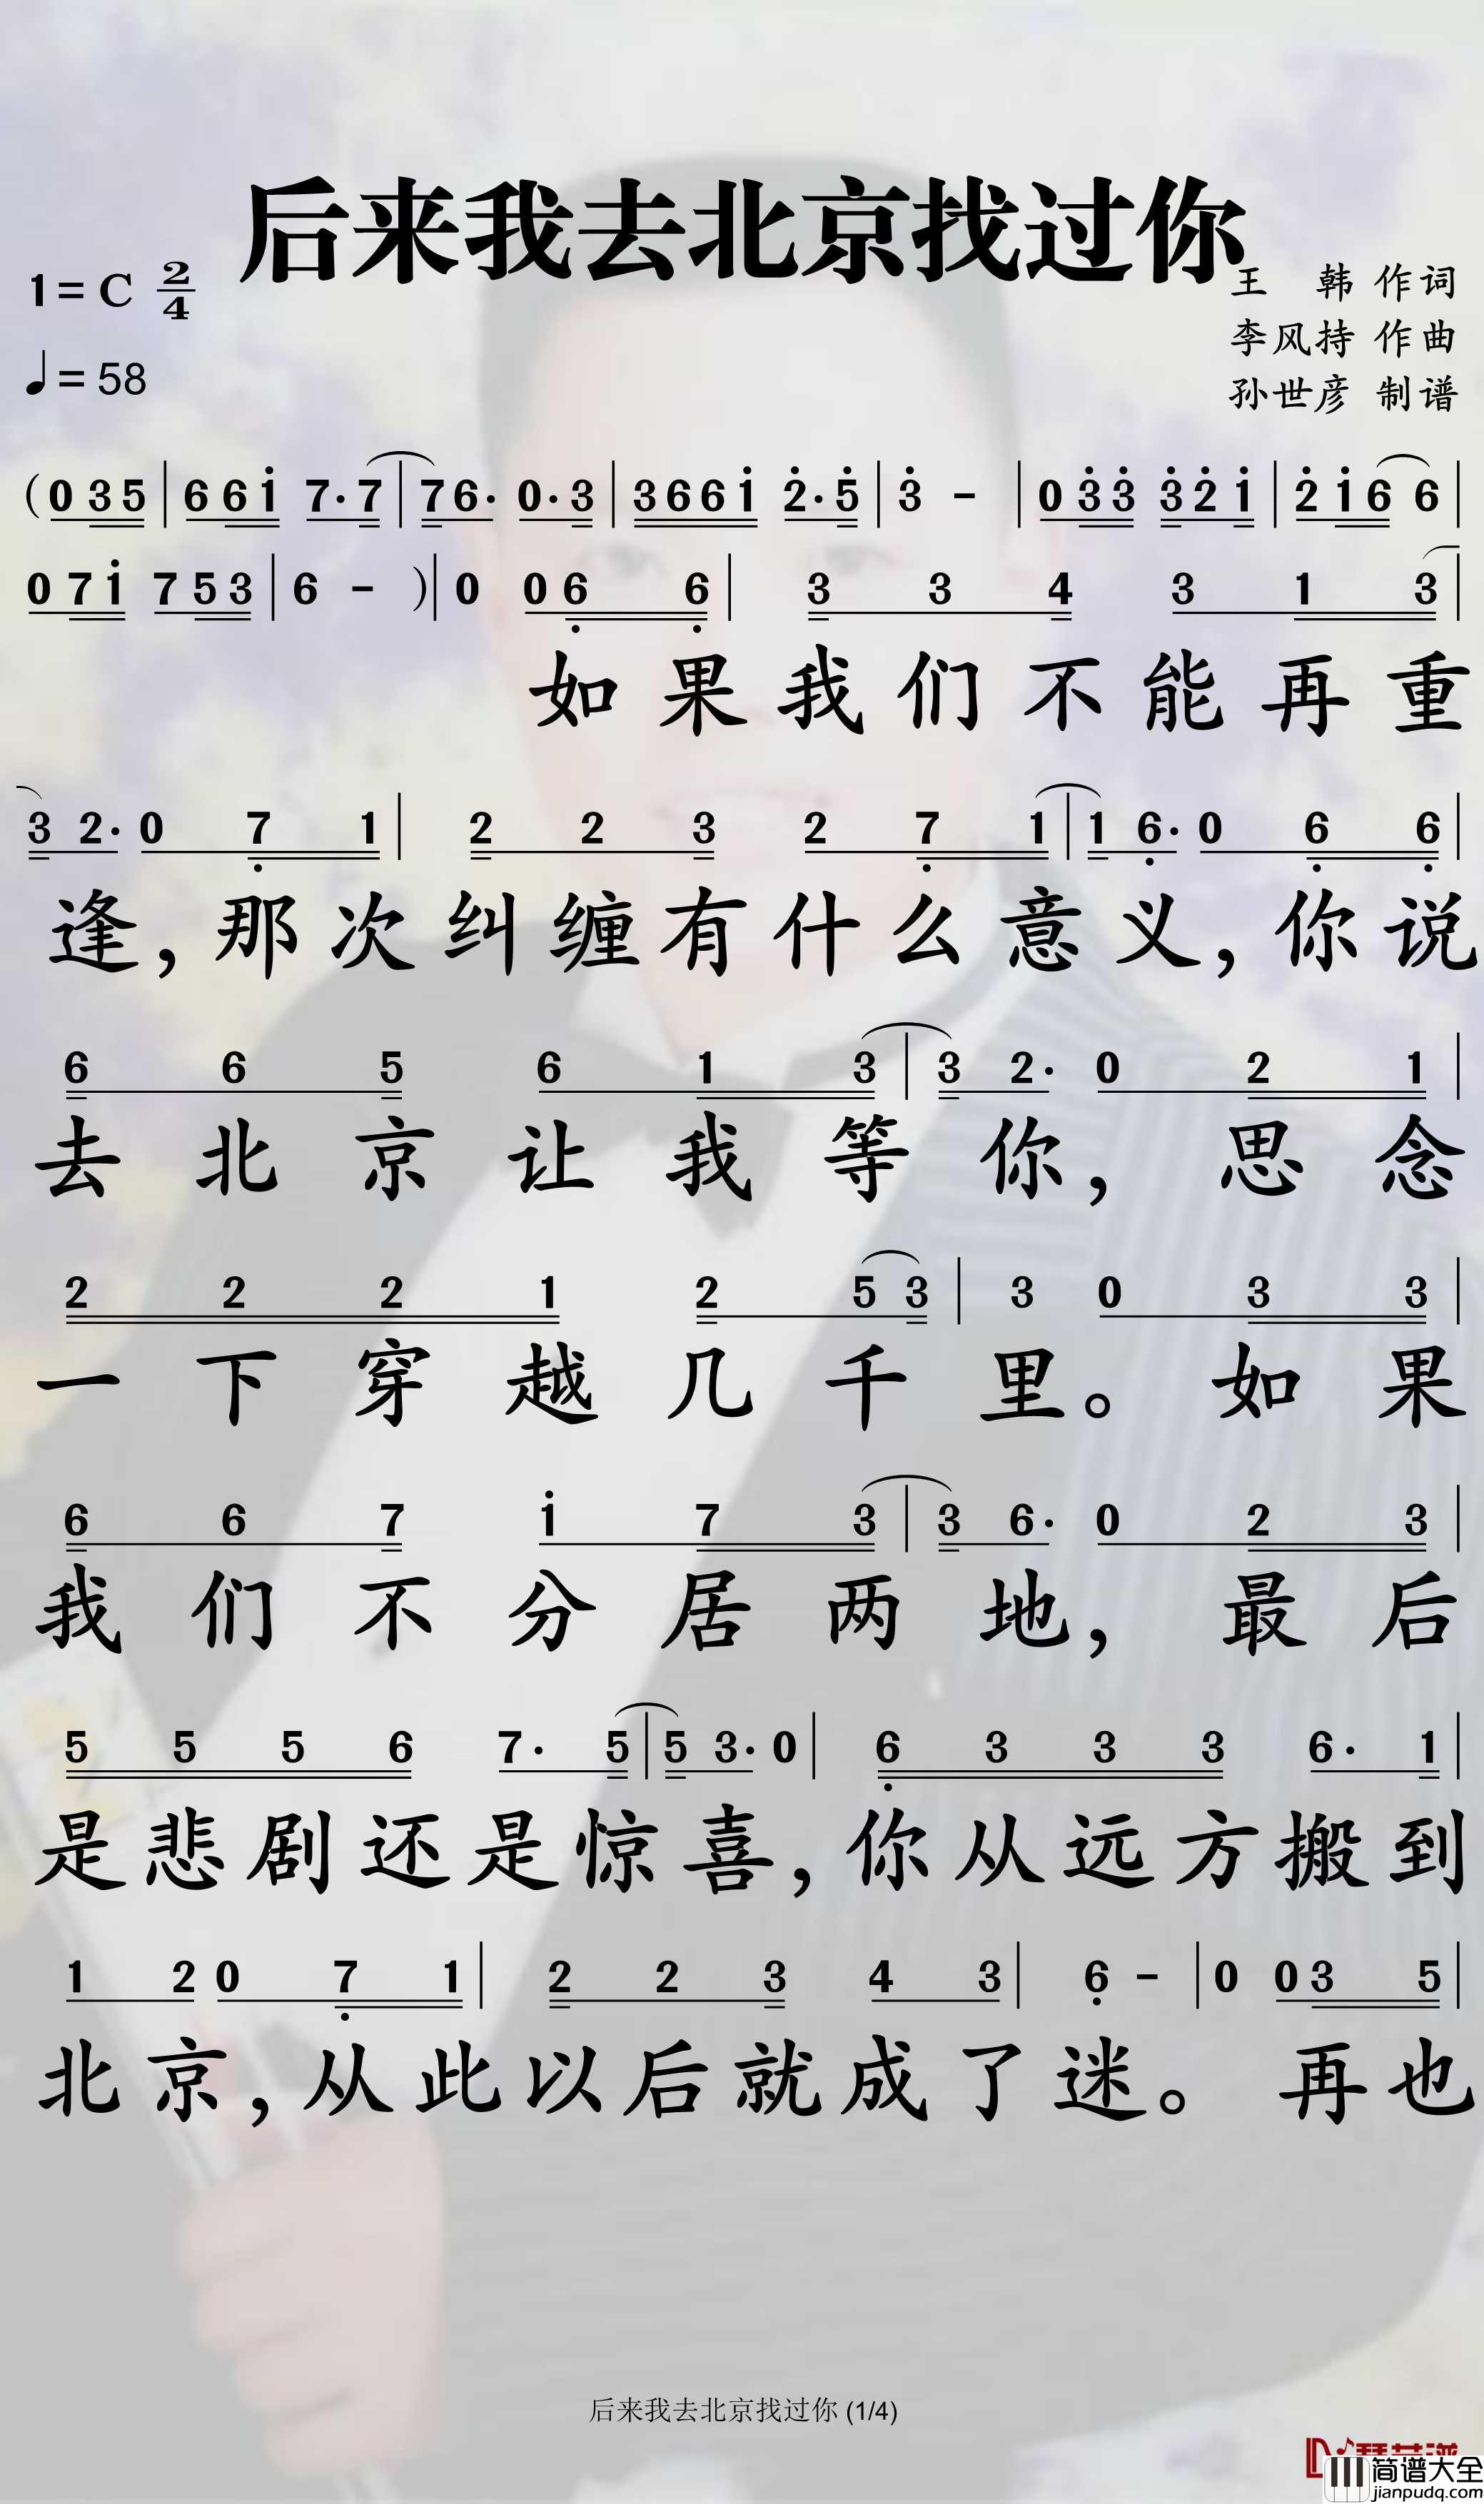 后来我去北京找过你
1= C 2/4
♩= 58
王 韩 作词
李风持 作曲
孙世彦 制谱
(0 3 5 | 6 6 1̇ 7· 7 | 7 6· 0· 3 | 3 6 6 1̇ 2̇· 5̇ | 3̇ - | 0 3̇ 3̇ 3̇ 2̇ 1̇ | 2̇ 1̇ 6 6 |
0 7 1̇ 7 5 3 | 6 - )| 0 0 6̣ 6̣ | 3 3 4 3 1 3 |
如果我们不能再重
3 2· 0 7̣ 1 | 2 2 3 2 7̣ 1 | 1 6̣· 0 6̣ 6̣ |
逢,那次纠缠有什么意义,你说
6 6 5 6 1 3 | 3 2· 0 2 1 |
去北京让我等你,思念
2 2 2 1 2 5 3 | 3 0 3 3 |
一下穿越几千里。如果
6 6 7 1̇ 7 3 | 3 6· 0 2 3 |
我们不分居两地,最后
5 5 5 6 7· 5 | 5 3· 0 | 6̣ 3 3 3 6· 1 |
是悲剧还是惊喜,你从远方搬到
1 2 0 7̣ 1 | 2 2 3 4 3 | 6̣ - | 0 0 3 5 |
北京,从此以后就成了迷。再也
后来我去北京找过你 (1/4)
简谱大全
jianpudq.com